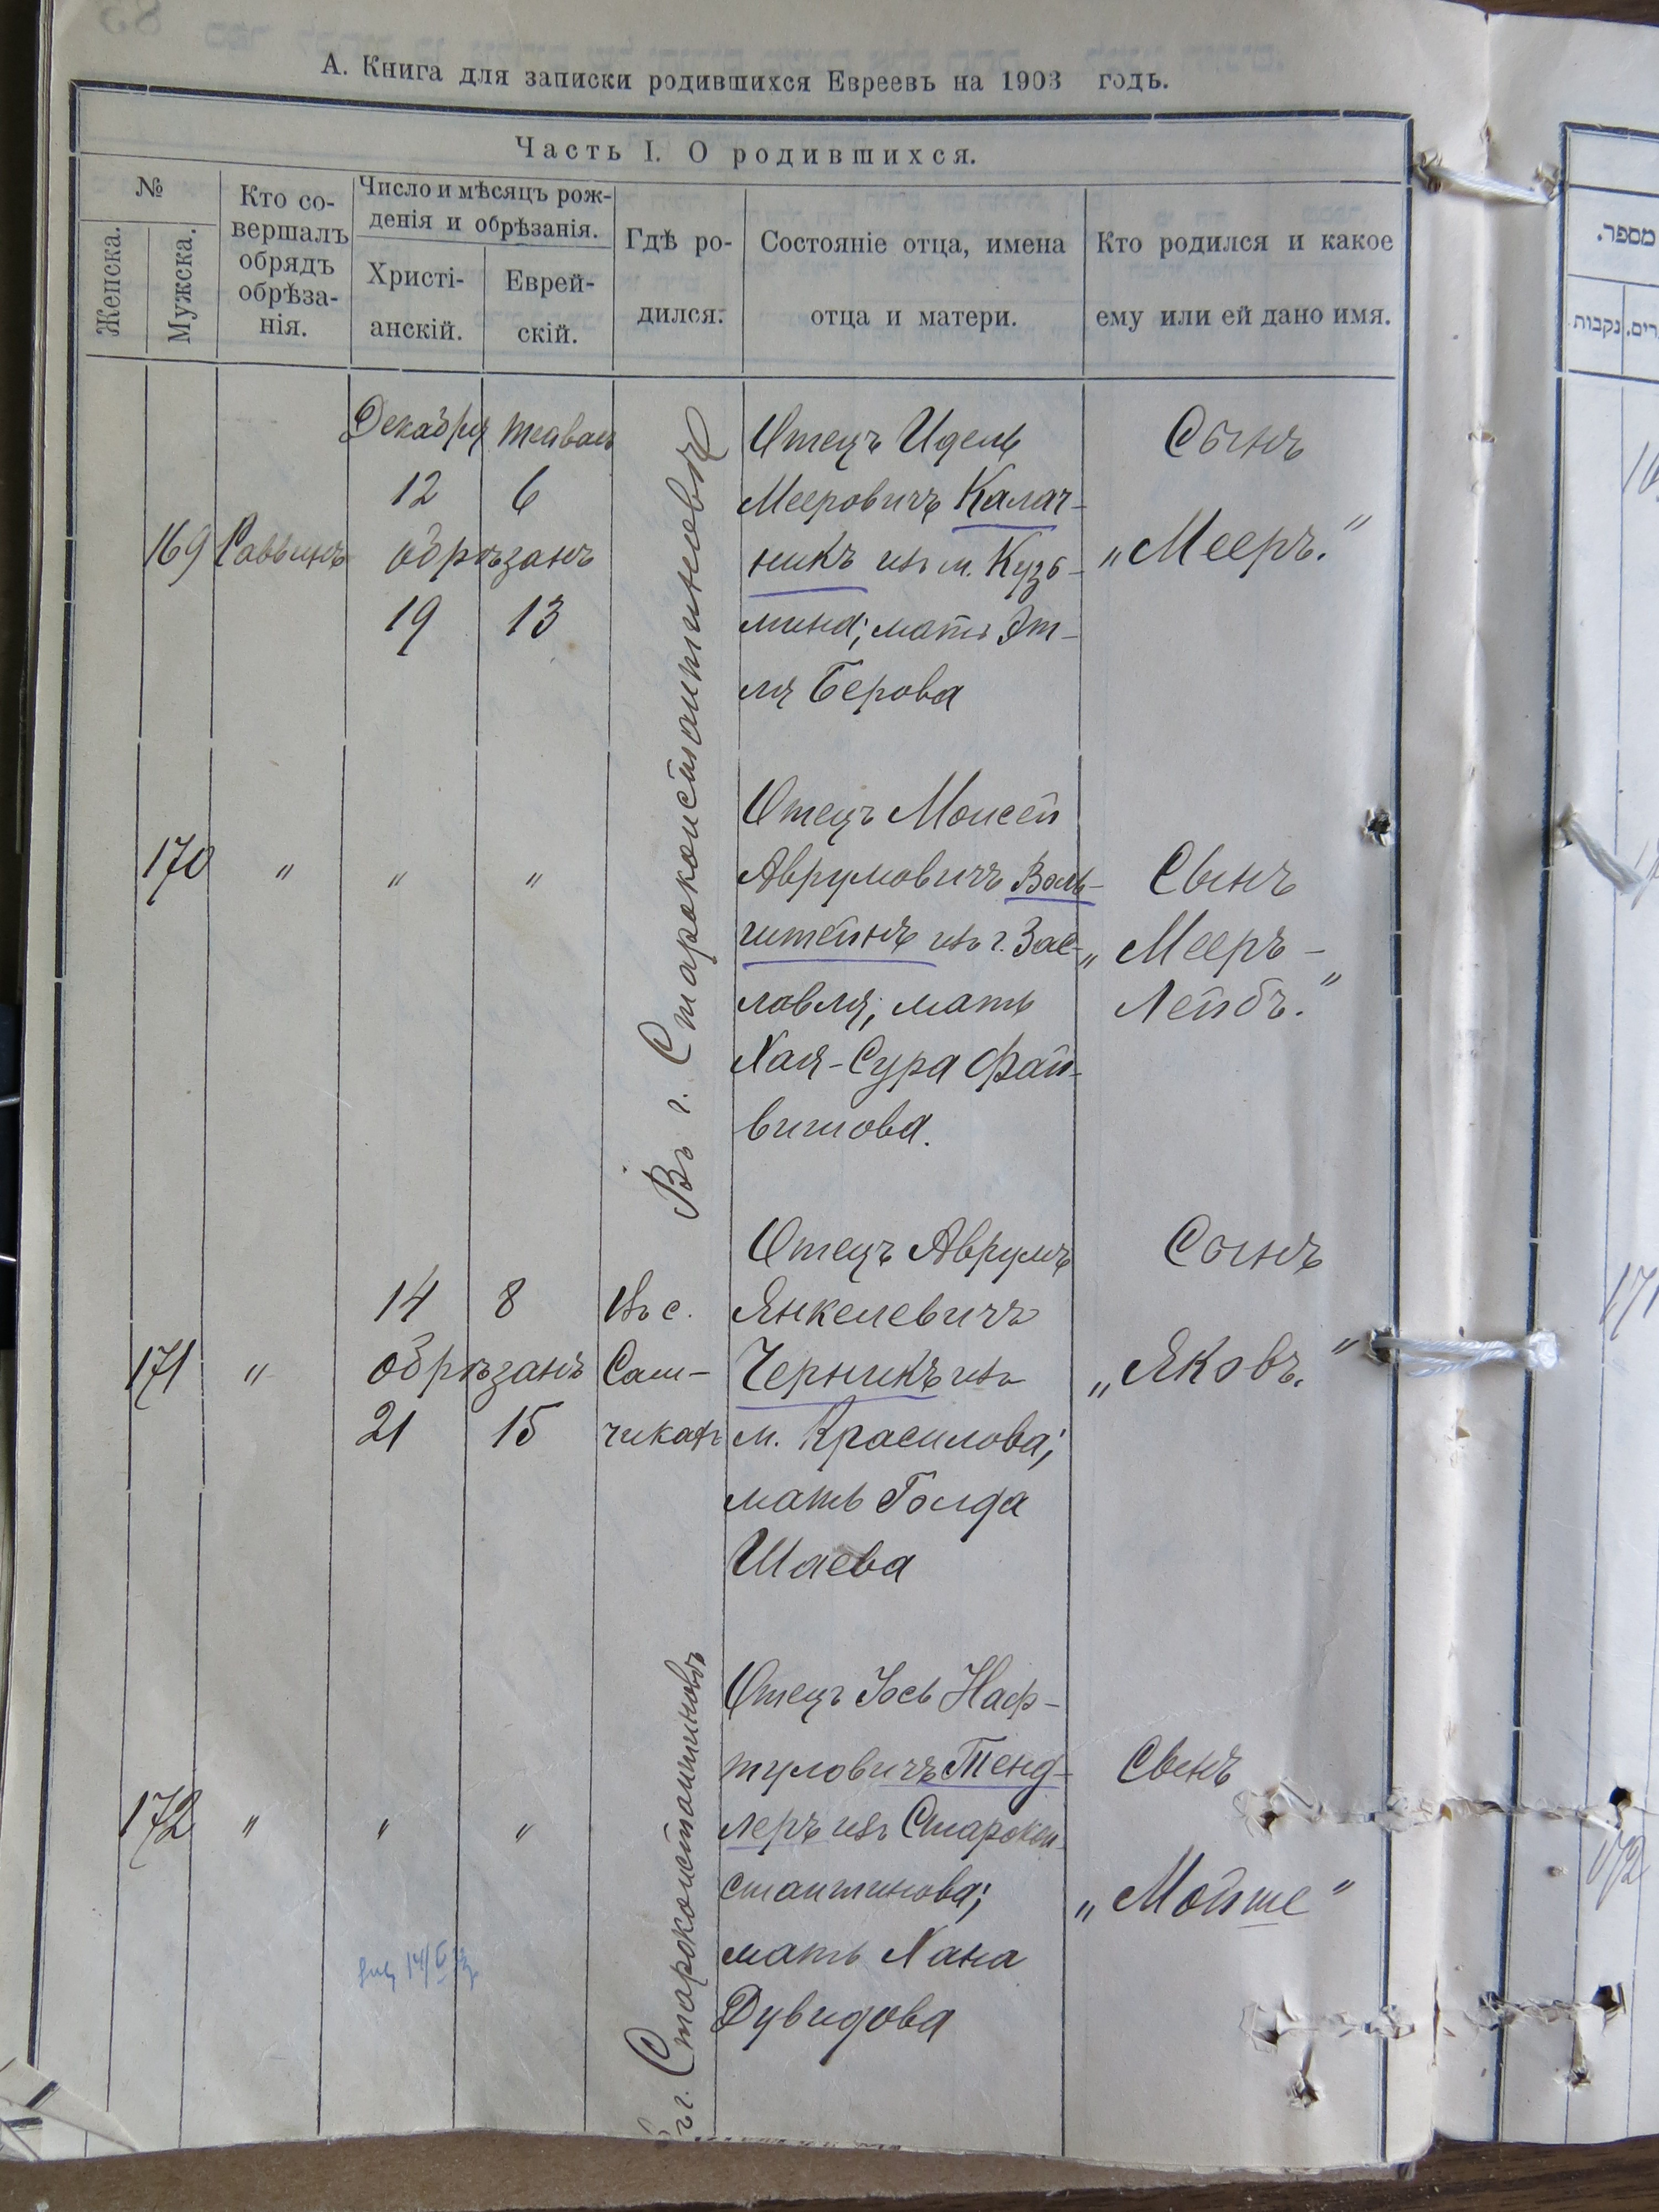 А. Книга для записки родившихся Евреевъ на 1903 годъ.
Часть I. О родившихся.
№
Женска.
Мужска.
Кто со-
вершалъ
обрядъ
обрѣза-
нія.
Число и мѣсяцъ рож-
денія и обрѣзанія.
Христі-
анскій.
Еврей-
скій.
Гдѣ ро-
дился:
Состояніе отца, имена
отца и матери.
Кто родился и какое
ему или ей дано имя.
169
Раввинъ
Декабря
12 6
обрѣзанъ
19 13
Въ г. Староконстантиновѣ
Отецъ Идель
Мееровичъ Калач-
никъ изъ м. Кузь-
мина; мать Эт-
ля Берова
Сынъ
„Мееръ.“
170 " " "
Отецъ Моисей
Аврумовичъ Валь-
штейнъ изъ г. Зас-
лавля; мать
Хая-Сура Фай-
вишова.
Сынъ
„Мееръ-
Лейбъ.“
171 "
14 8
обрѣзанъ
21 15
Въ с.
Сам-
чикахъ
Отецъ Аврумъ
Янкелевичъ
Черникъ изъ
м. Красилова;
мать Голда
Шаева
Сынъ
„Яковъ.“
172 " " "
ъ г. Староконстантиновѣ
Отецъ Іось Наф-
туловичъ Тенд-
леръ изъ Старокон-
стантинова;
мать Хана
Дувидова
Сынъ
„Мойше“
מספר.
נקבות
171
172